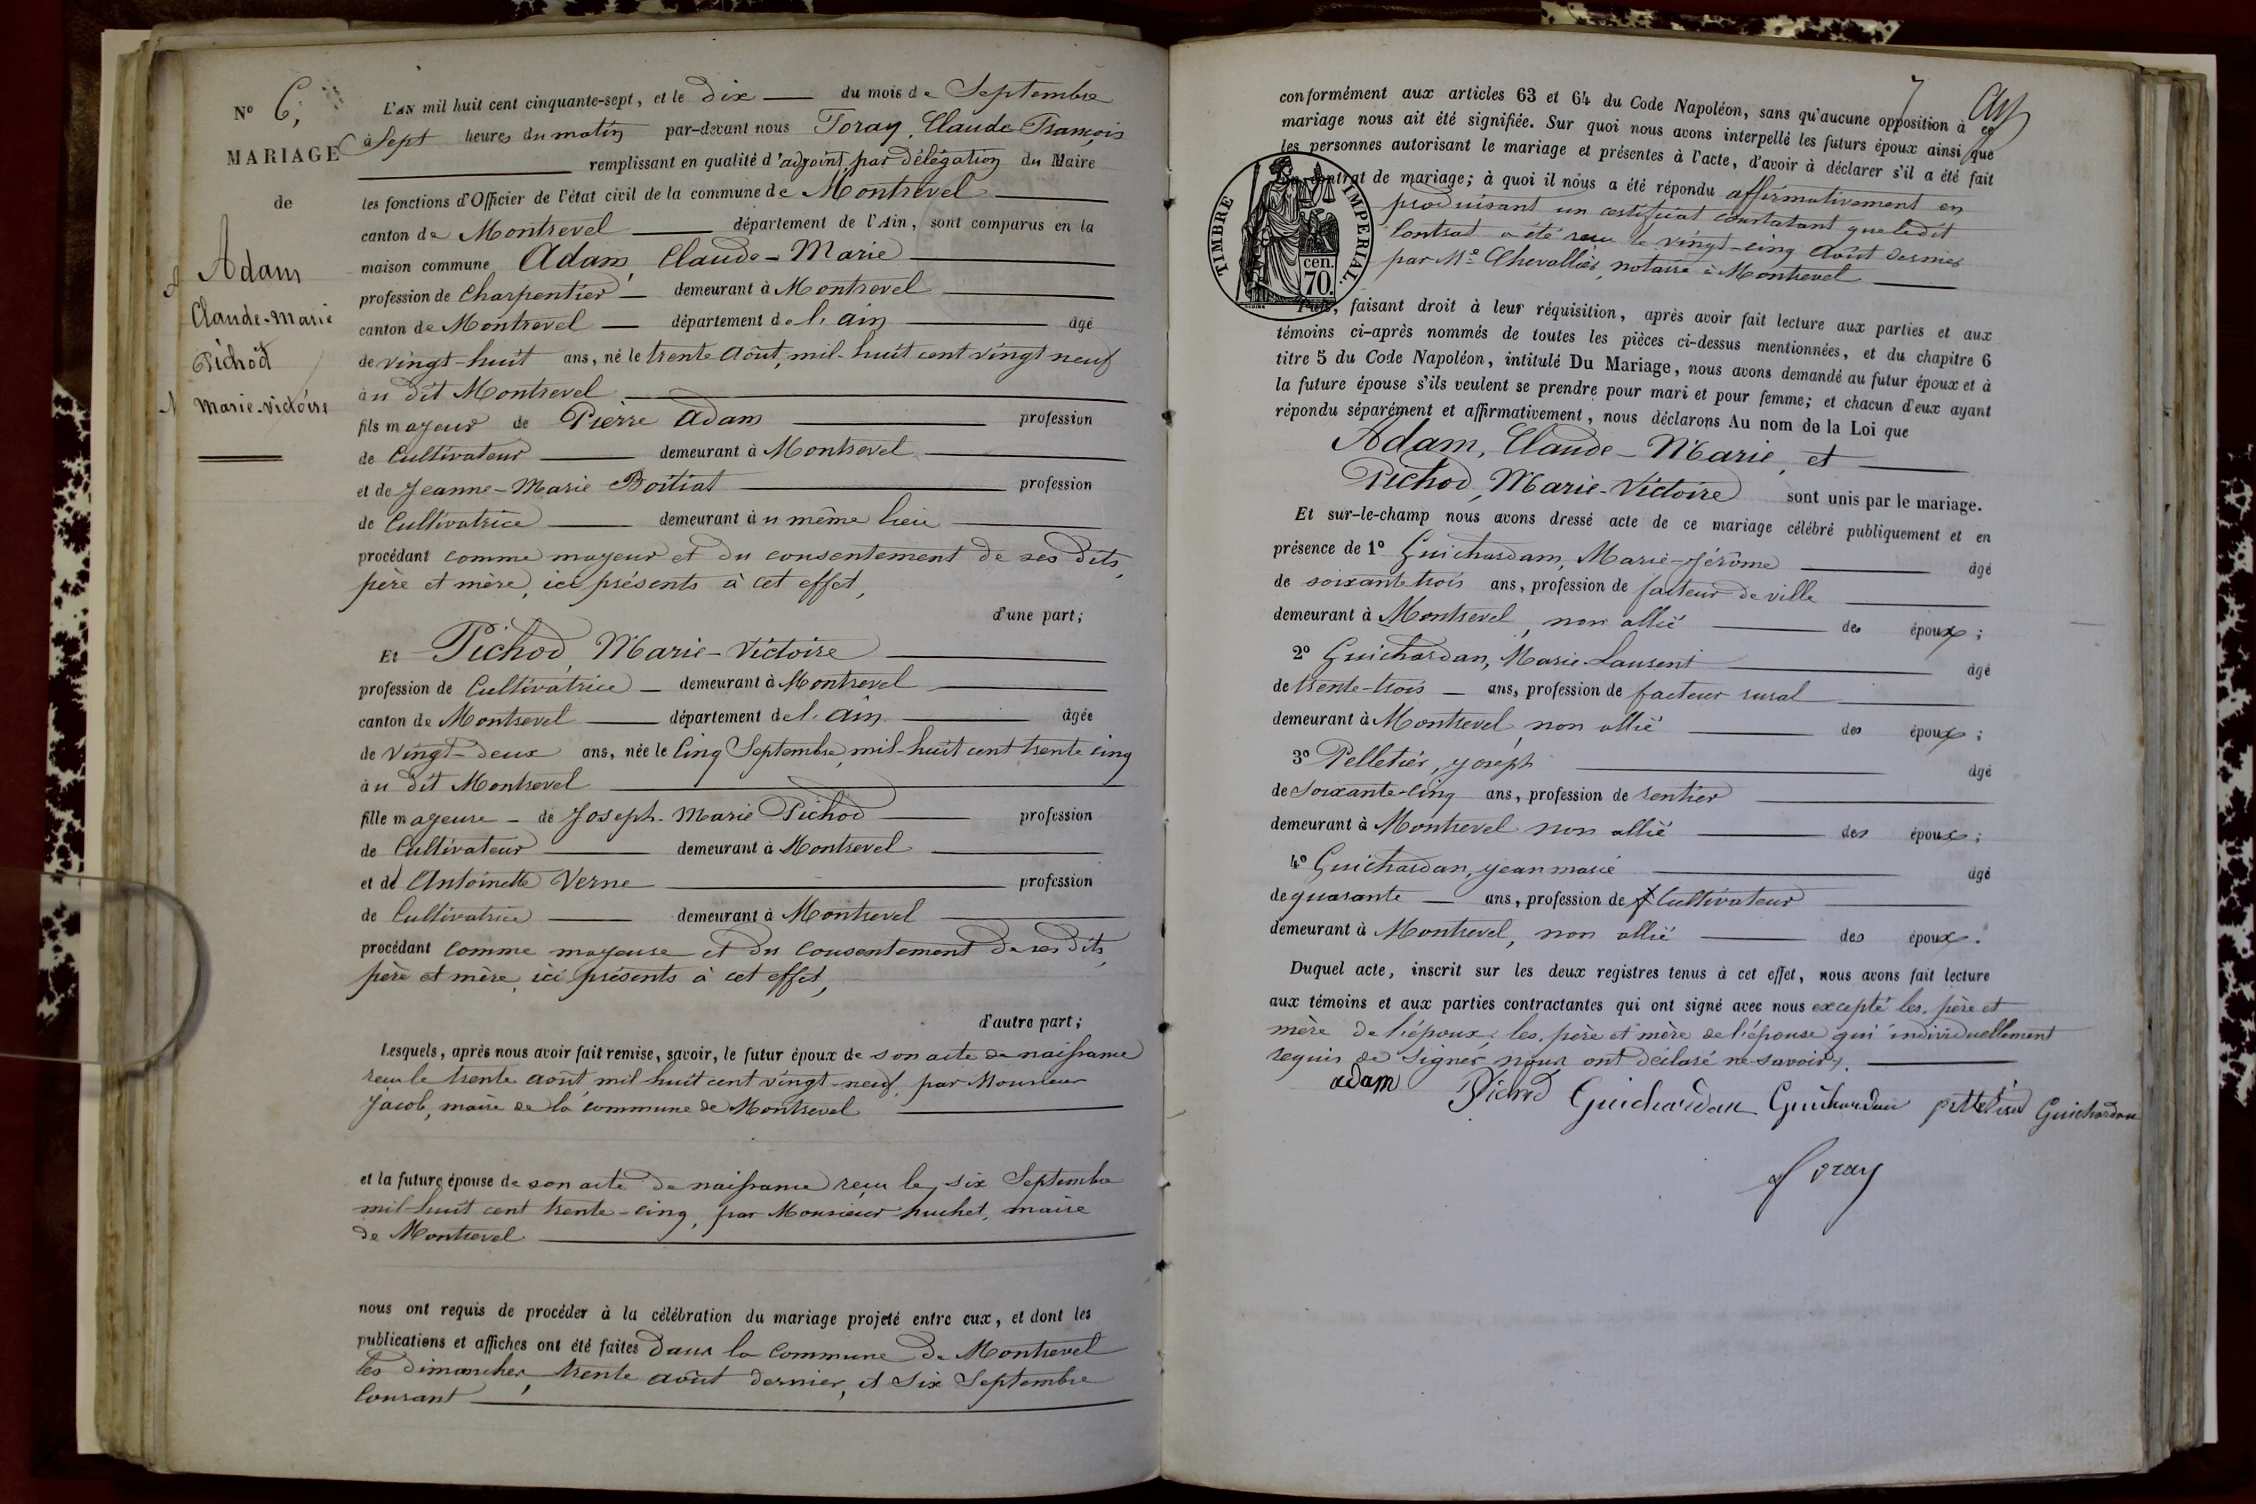 N° 6,
MARIAGE
de
Adam
Claude-Marie
Pichod
Marie-Victoire
L'AN mil huit cent cinquante-sept, et le dix du mois de Septembre
à Sept heures du matin par-devant nous Foray, Claude François
remplissant en qualité d'adjoint, par délégation du Maire
les fonctions d'Officier de l'état civil de la commune de Montrevel
canton de Montrevel département de l'Ain, sont comparus en la
maison commune Adam, Claude-Marie
profession de Charpentier demeurant à Montrevel
canton de Montrevel département de l'ain âgé
de vingt-huit ans, né le trente Août, mil-huit cent vingt neuf
à u dit Montrevel
fils majeur de Pierre Adam profession
de Cultivateur demeurant à Montrevel
et de Jeanne-Marie Boitiat profession
de Cultivatrice demeurant à u même lieu
procédant comme majeur et du consentement de ses dits
père et mère, ici présents à cet effet,
d'une part;
Et Pichod, Marie-Victoire
profession de Cultivatrice demeurant à Montrevel
canton de Montrevel département de l'ain âgée
de vingt-deux ans, née le Cinq Septembre, mil-huit cent trente cinq
à u dit Montrevel
fille majeure de Joseph-Marie Pichod profession
de Cultivateur demeurant à Montrevel
et de Antoinette Verne profession
de Cultivatrice demeurant à Montrevel
procédant comme majeure et du consentement de ses dits
père et mère, ici présents à cet effet,
d'autre part;
Lesquels, après nous avoir fait remise, savoir, le futur époux de son acte de naissance
reçu le trente août mil huit cent vingt-neuf, par Monsieur
Jacob, maire de la commune de Montrevel
et la future épouse de son acte de naissance reçu le six Septembre
mil-huit cent trente-cinq, par Monsieur huchet, maire
de Montrevel
nous ont requis de procéder à la célébration du mariage projeté entre eux, et dont les
publications et affiches ont été faites dans la commune de Montrevel
les dimanches, trente août dernier, et six Septembre
Courant
7
conformément aux articles 63 et 64 du Code Napoléon, sans qu'aucune opposition à ce
mariage nous ait été signifiée. Sur quoi nous avons interpellé les futurs époux ainsi que
les personnes autorisant le mariage et présentes à l'acte, d'avoir à déclarer s'il a été fait
contrat de mariage; à quoi il nous a été répondu affirmativement en
produisant un certificat constatant que le dit
Contrat a été reçu le vingt-cinq Août dernier
par Me Chevallier, notaire à Montrevel
TIMBRE IMPERIAL.
cen.
70.
Puis, faisant droit à leur réquisition, après avoir fait lecture aux parties et aux
témoins ci-après nommés de toutes les pièces ci-dessus mentionnées, et du chapitre 6
titre 5 du Code Napoléon, intitulé Du Mariage, nous avons demandé au futur époux et à
la future épouse s'ils veulent se prendre pour mari et pour femme; et chacun d'eux ayant
répondu séparément et affirmativement, nous déclarons Au nom de la Loi que
Adam, Claude-Marie, et
Pichod, Marie-Victoire sont unis par le mariage.
Et sur-le-champ nous avons dressé acte de ce mariage célébré publiquement et en
présence de 1° Guichardam, Marie-Jérôme âgé
de soixante trois ans, profession de facteur de ville
demeurant à Montrevel, non allié des époux;
2° Guichardan, Marie-Laurent âgé
de trente-trois ans, profession de facteur rural
demeurant à Montrevel, non allié des époux;
3° Pelletier, joseph âgé
de soixante-cinq ans, profession de rentier
demeurant à Montrevel non allié des époux;
4° Guichardan, jean marie âgé
de quarante ans, profession de Cultivateur
demeurant à Montrevel, non allié des époux.
Duquel acte, inscrit sur les deux registres tenus à cet effet, nous avons fait lecture
aux témoins et aux parties contractantes qui ont signé avec nous excepté les père et
mère de l'époux; les père et mère de l'épouse qui individuellement
requis de signer nous ont déclaré ne savoir.
adam Pichod Guichardan Guichardan pelletier Guichardan
foray